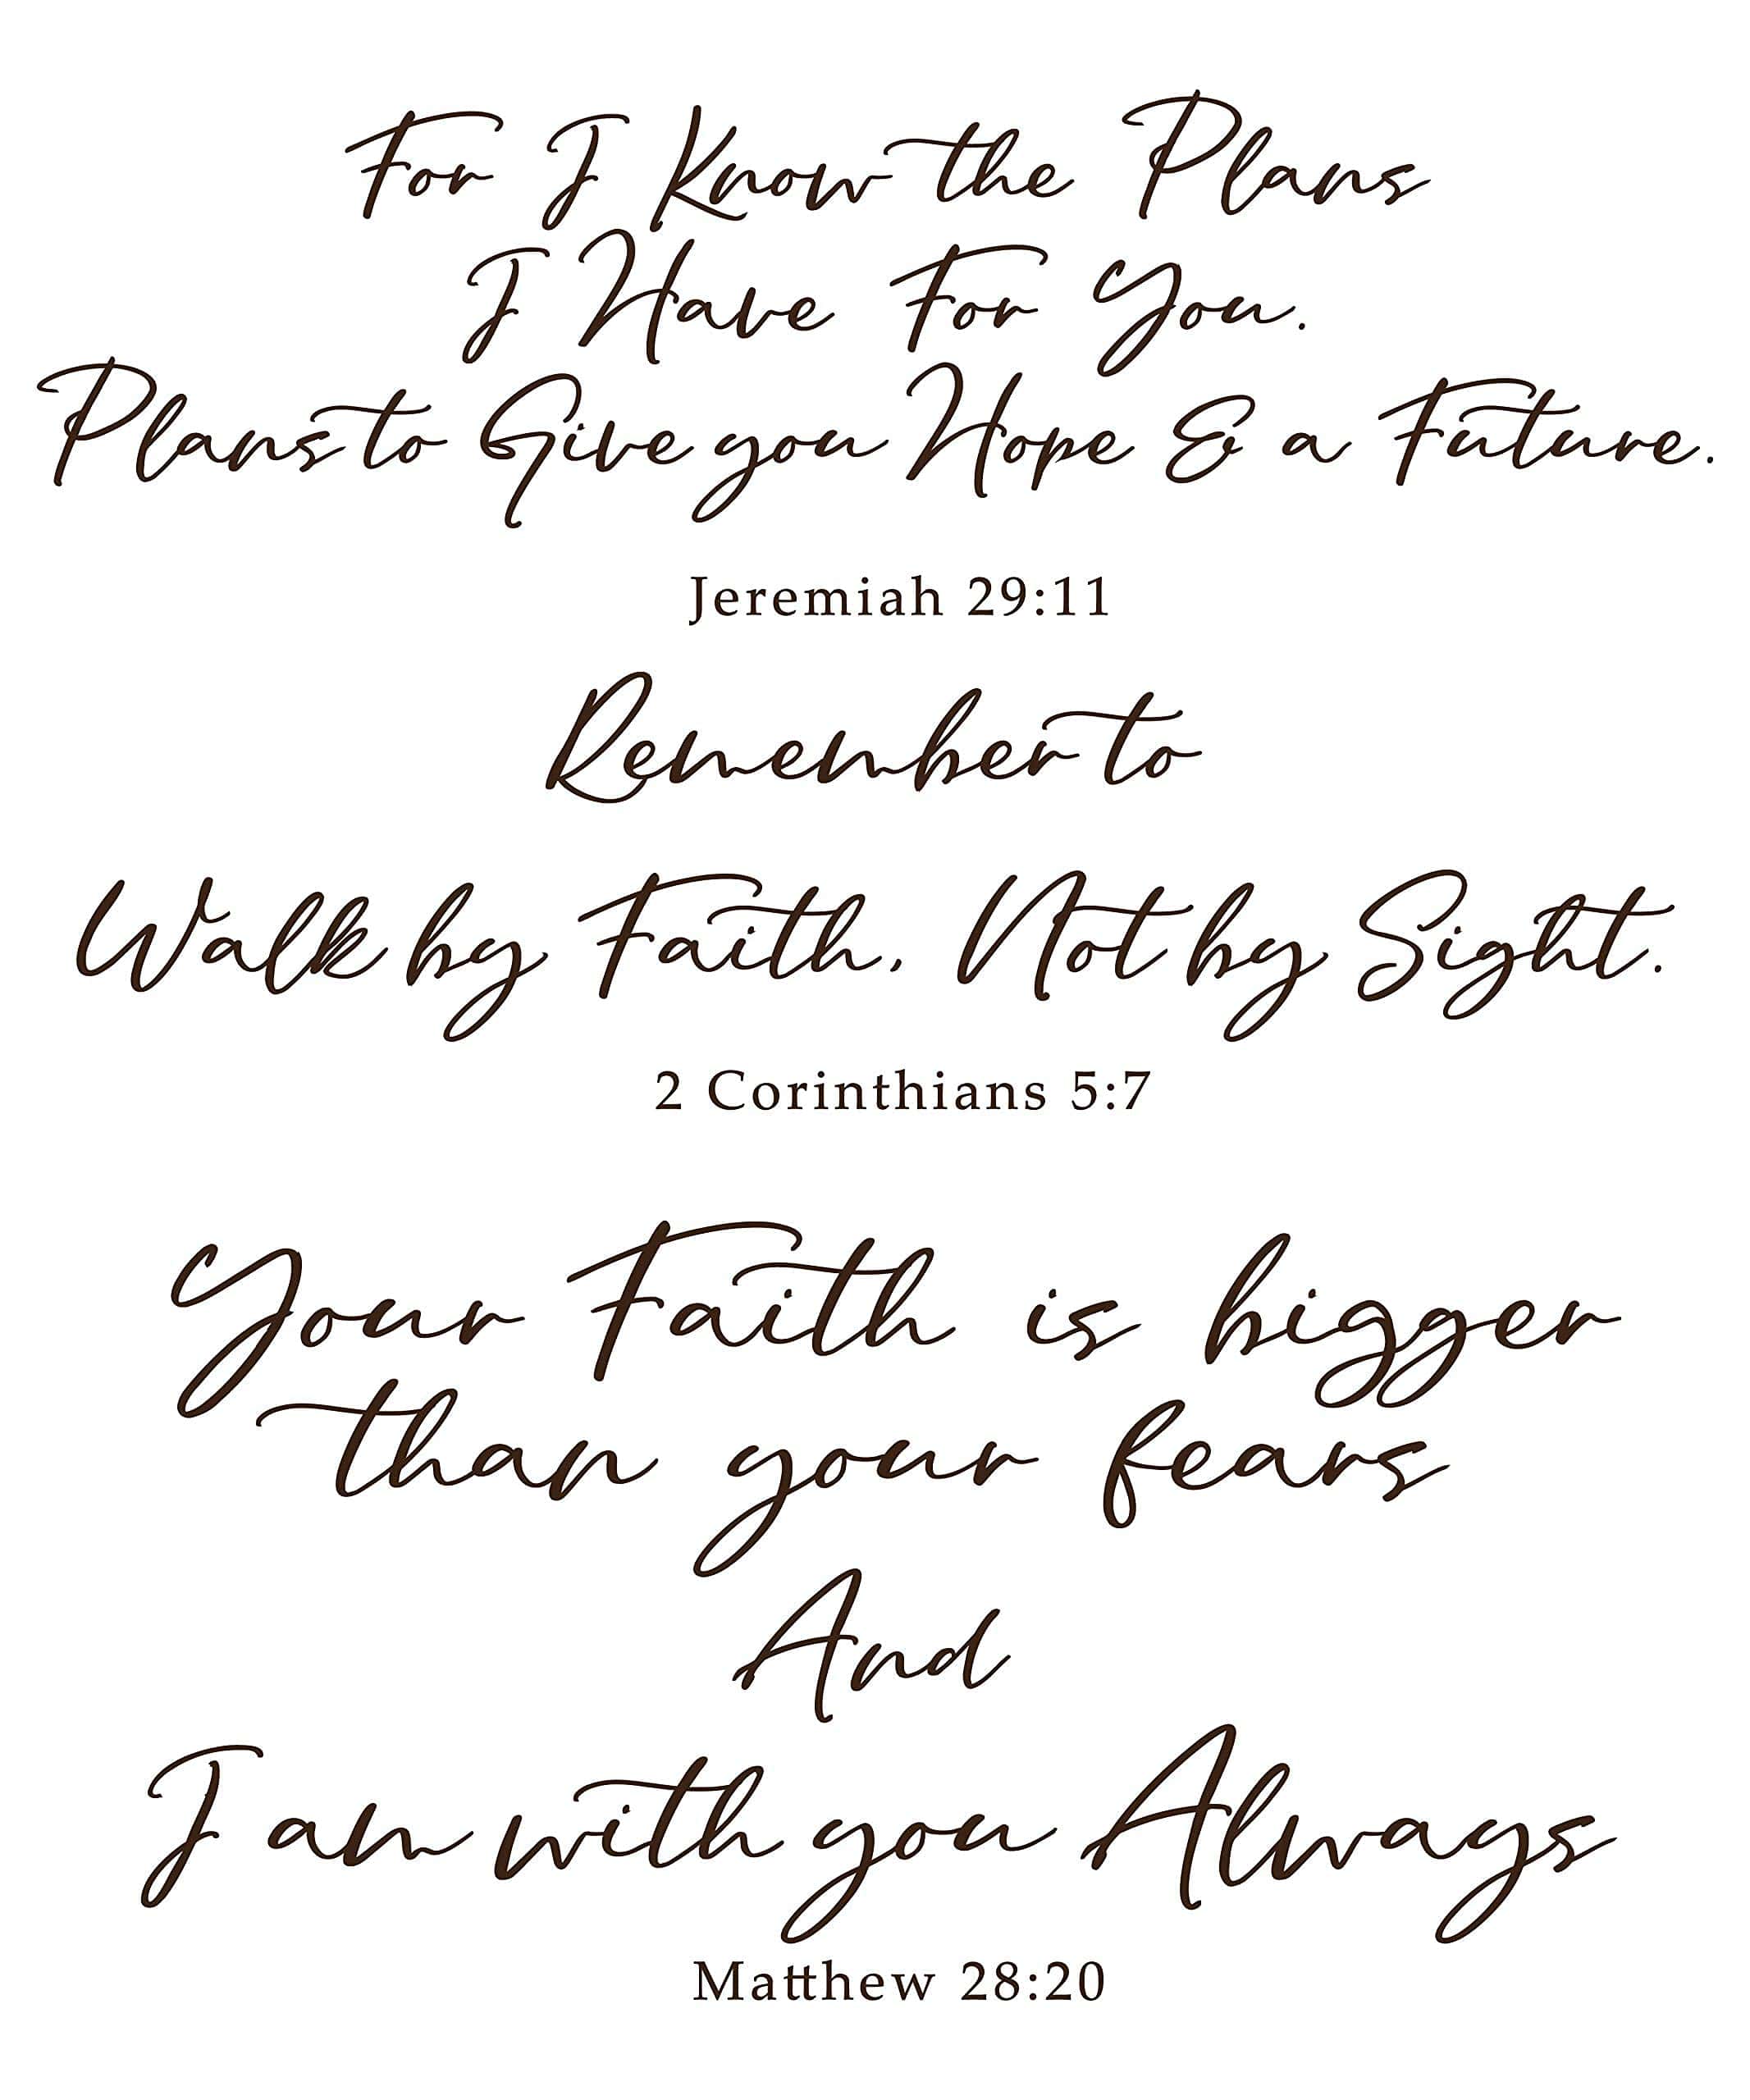 For I Know the Plans
I Have For You.
Plans to Give you Hope & a Future.
Jeremiah 29:11
Remember to
Walk by Faith, Not by Sight.
2 Corinthians 5:7
Your Faith is bigger
than your fears
And
I am with you Always
Matthew 28:20